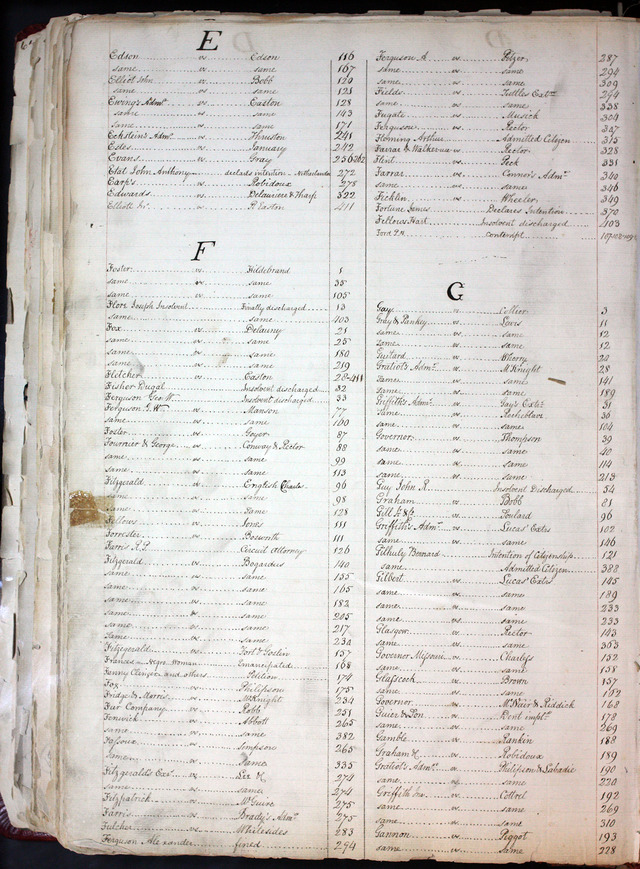 E
Edson vs Edson 116
same vs same 167
Elliot John vs Bobb 129
same vs same 121
Ewing's Adm^r. vs Easton 128
same vs same 143
same vs same 171
Eckstein's Adm^r. vs Thruston 241
Estes vs January 242
Evans vs Gray 256
Elat John Anthony declads intention - Netherlands 272
Earp's vs Robidoux 278
Edwards vs Delauriere & Tharp 322
Elliott vs R. Easton 411
F
Foster vs Hildebrand 1
same vs same 35
same vs same 105
Flore Joseph Insolvent Finally discharged 13
same same 403
Fox vs Delauny 21
same vs same 25
same vs same 180
same vs same 219
Fletcher vs Easton 28-411
Fisher Dugal Insolvent discharged 32
Ferguson Geo. W. Insolvent discharged 33
Ferguson G. W^m vs Manson 77
same vs same 100
Foster vs Goyer 87
Fournier & George vs Conway & Rector 88
same vs same 99
same vs same 113
Fitzgerald vs English Charles 96
same vs same 98
same vs same 128
Fellows vs Jones 111
Forrester vs Bosworth 111
Farris R.P. vs Circuit Attorney 126
Fitzgerald vs Bogardus 140
same vs same 155
same vs same 165
same vs same 182
same vs same 205
same vs same 217
same vs same 230
Fitzgerald vs Fort & Goslin 157
Frances - Negro Woman Emancipated 168
Fanny Clinger and others Petition 174
Fox vs Philipson 175
Fridge & Morris vs McKnight 234
Fur Company vs Robb 251
Fenwick vs Abbott 265
same vs same 382
Fassoux vs Simpson 265
same vs Same 335
Fitzgerald's Exr. vs Lee 274
same vs same 274
Fitzpatrick vs McGuire 275
Farris vs Brady's Adm^r. 275
Fitcher vs Whitesides 283
Ferguson Alexander fined 294
Ferguson A. vs Pelzer 287
same vs same 294
same vs same 309
Fields vs Tuttles Ext^rs 294
same vs same 338
Fugate vs Musick 304
Ferguson vs Rector 307
Fleming Arthur Admitted Citizen 313
Farrar & Walker vs Rector 328
Flint vs Peck 331
Farrar vs Connor's Adm^r. 340
same vs same 346
Ficklin vs Wheeler 349
Fortune James Declares Intention 370
Fellows Hart Insolvent discharged 403
Ford contempt
G
Gay vs Collier 3
Gray & Pankey vs Lewis 11
same vs same 12
same vs same 12
Guitard vs Wherry 20
Gratiot's Adm^r. vs McKnight 28
same vs same 141
same vs same 189
Griffith's Adm^r. vs Gay's Exts. 31
same vs Pecheblave 36
same vs same 104
Governor vs Thompson 39
same vs same 40
same vs same 114
same vs same 213
Guy John R. Insolvent Discharged 54
Graham vs Bobb 81
Gill & Co. vs Soulard 96
Griffith's Adm^r. vs Lucas' Extrs 102
same vs same 146
Gilhuly Bernard Intention of Citizenship 121
same Admitted Citizen 388
Gilbert vs Lucas' Extrs 145
same vs same 189
same vs same 233
same vs same 233
Glasgow vs Rector 143
same vs same 303
Governor Missouri vs Charless 152
same vs same 158
Glasscock vs Brown 157
same vs same 162
Governor vs McNair & Riddick 168
Guier & Son vs Dent impl^d. 178
same vs same 269
Gamble vs Rankin 188
Graham vs Robidoux 189
Gratiot's Adm^r. vs Philipson & Labadie 190
same vs same 220
Griffith vs Cottel 192
same vs same 269
same vs same 310
Gannon vs Piggot 193
same vs Same 228